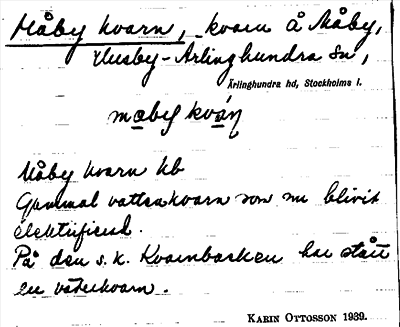 Måby kvarn, kvarn å Måby,
Husby-Ärlinghundra sn,
Ärlinghundra hd, Stockholms l.
måby kvá̱ṇ
Måby kvarn kb
Gammal vattenkvarn som nu blivit
elektrifierad.
På den s. k. Kvarnbacken har stått
en väderkvarn.
KARIN OTTOSSON 1939.